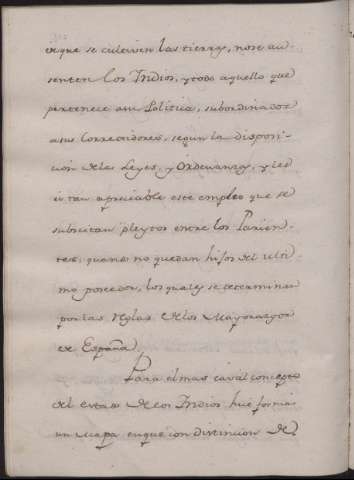 de que se cultiven las tierras, no se au-
senten los Indios, y todo aquello que
pertenece a su Politica, subordinados
a sus Corregidores, segun la disposi-
cion de las Leyes, y Ordenanzas, y les
es tan apreciable este empleo que se
subscitan pleytos entre los Parien-
tes, quando no quedan hijos del ulti-
mo poseedor, los quales se determinan
por las reglas de los Mayorazgos
de España.
Para el mas caval concepto
del estado de los Indios, hize formar
un Mapa en que con distincion de